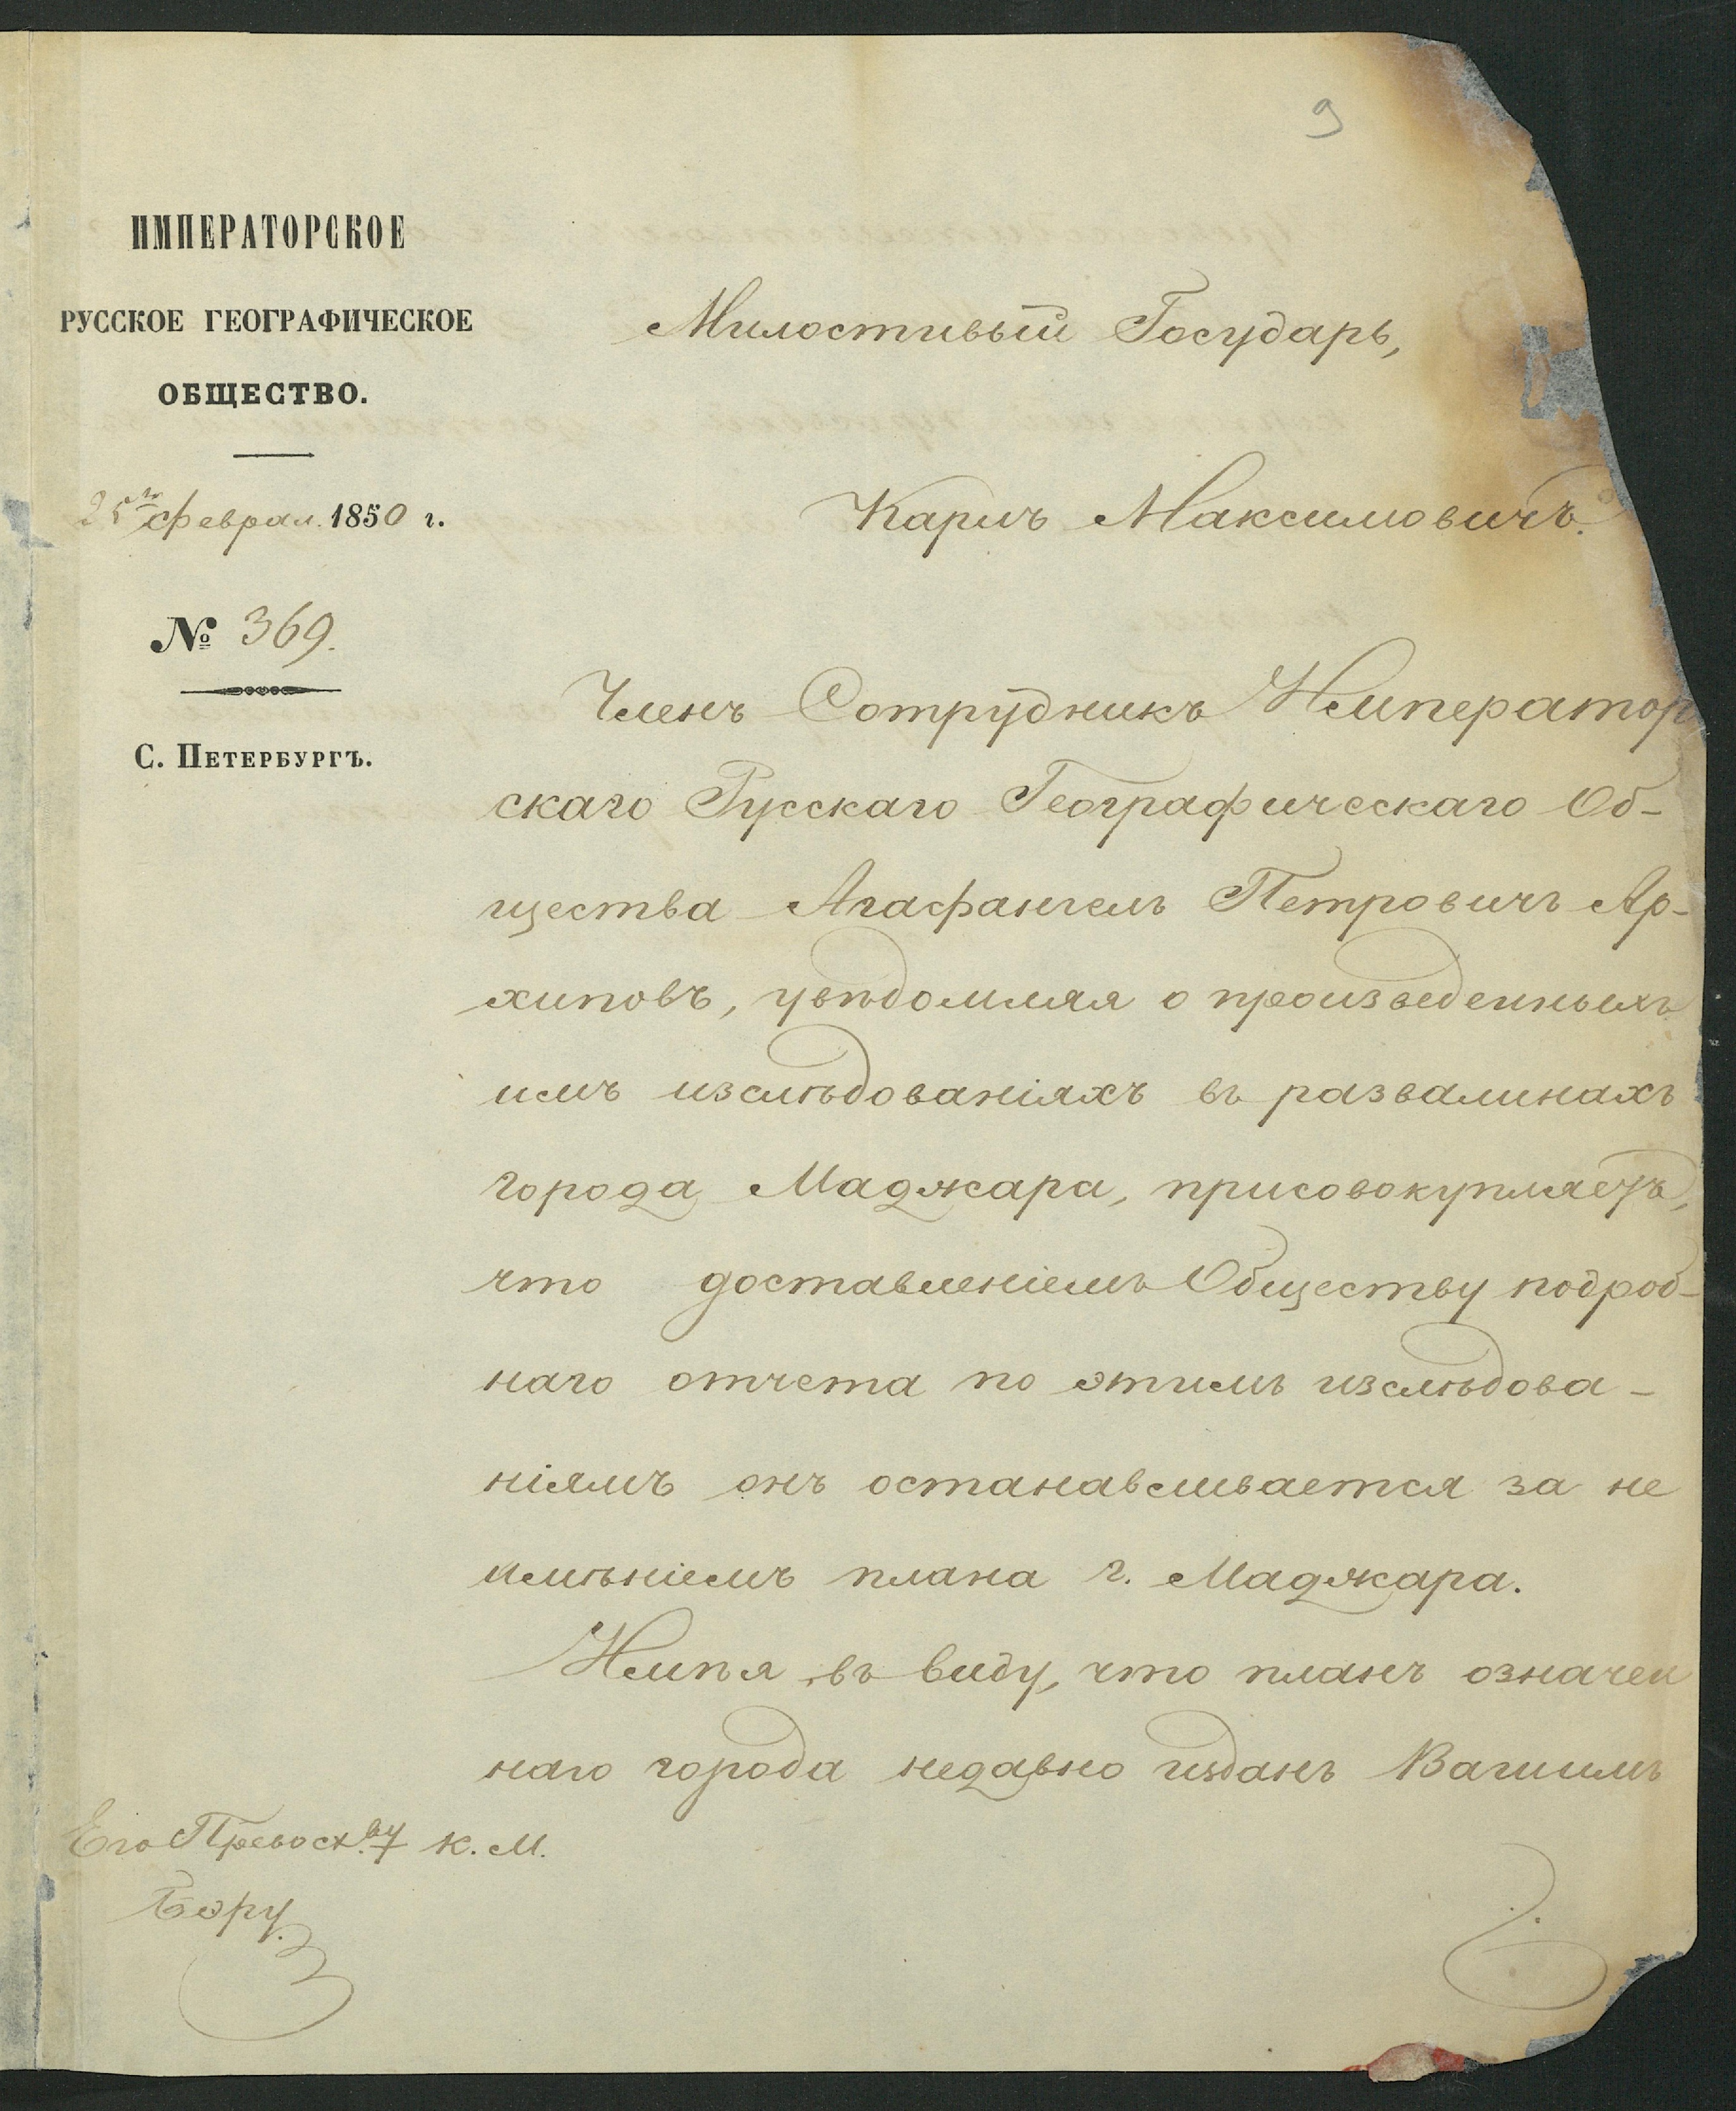 9
ИМПЕРАТОРСКОЕ
РУССКОЕ ГЕОГРАФИЧЕСКОЕ
ОБЩЕСТВО.
25го Феврал. 1850 г.
№ 369.
С. ПЕТЕРБУРГЪ.
Милостивый Государь,
Карлъ Максимовичъ.
Членъ Сотрудникъ Император
скаго Русскаго Географическаго Об-
щества Агафангелъ Петровичъ Ар-
хиповъ, увѣдомляя о произведенныхъ
имъ изслѣдованіяхъ въ развалинахъ
города Маджара, присовокупляетъ,
что доставленіемъ Обществу подроб-
наго отчета по этимъ изслѣдова-
ніямъ онъ останавливается за не
имѣніемъ плана г. Маджара.
Имѣя въ виду, что планъ означен
наго города недавно изданъ Вашимъ
Его Превосх.ву К. М.
Бэру.